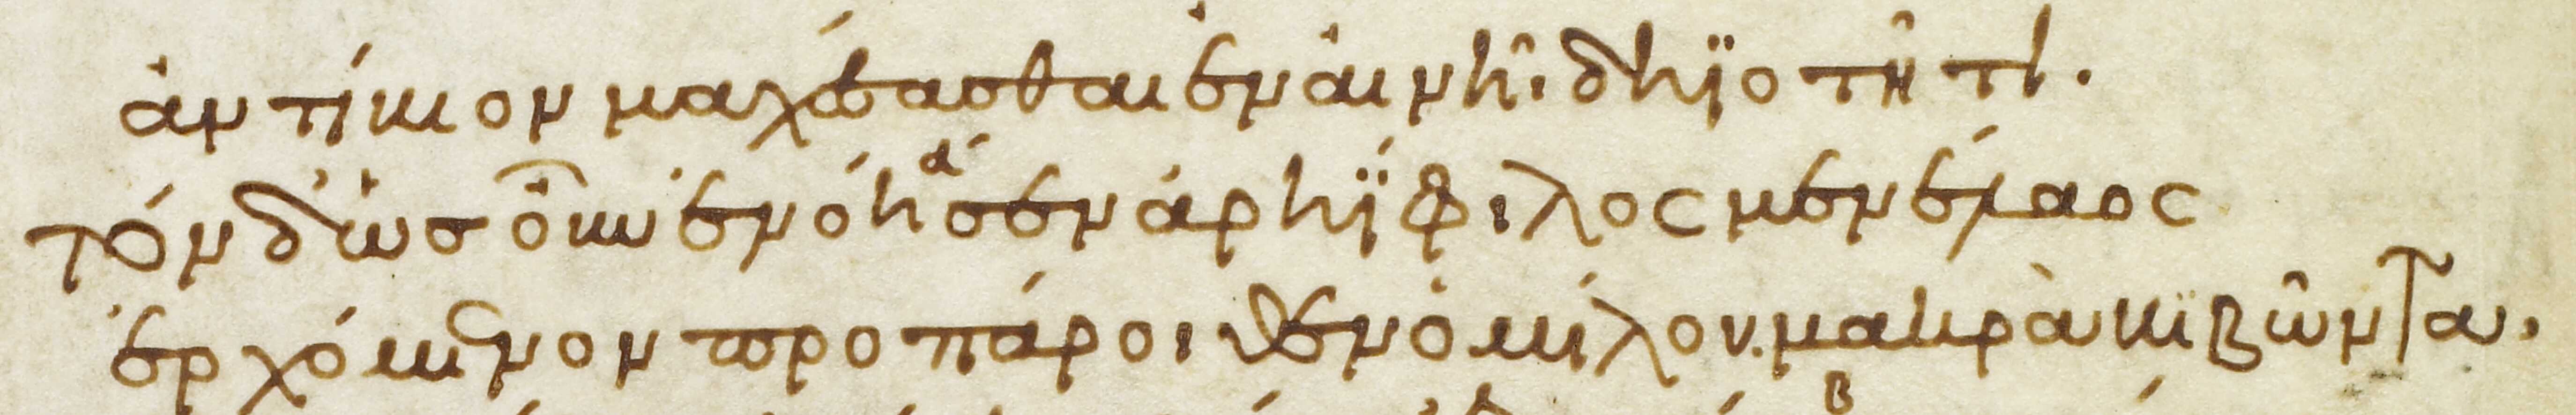 ἀντίβιον μαχέσασθαι ἐν αἰνῆι δηϊοτῆτι.
τὸν δ' ὡς οὖν ἐνόησεν ἀρηΐφιλος μενέλαος
ἐρχόμενον προπάροιθεν ὁμίλου μακρὰ βιβῶντα.